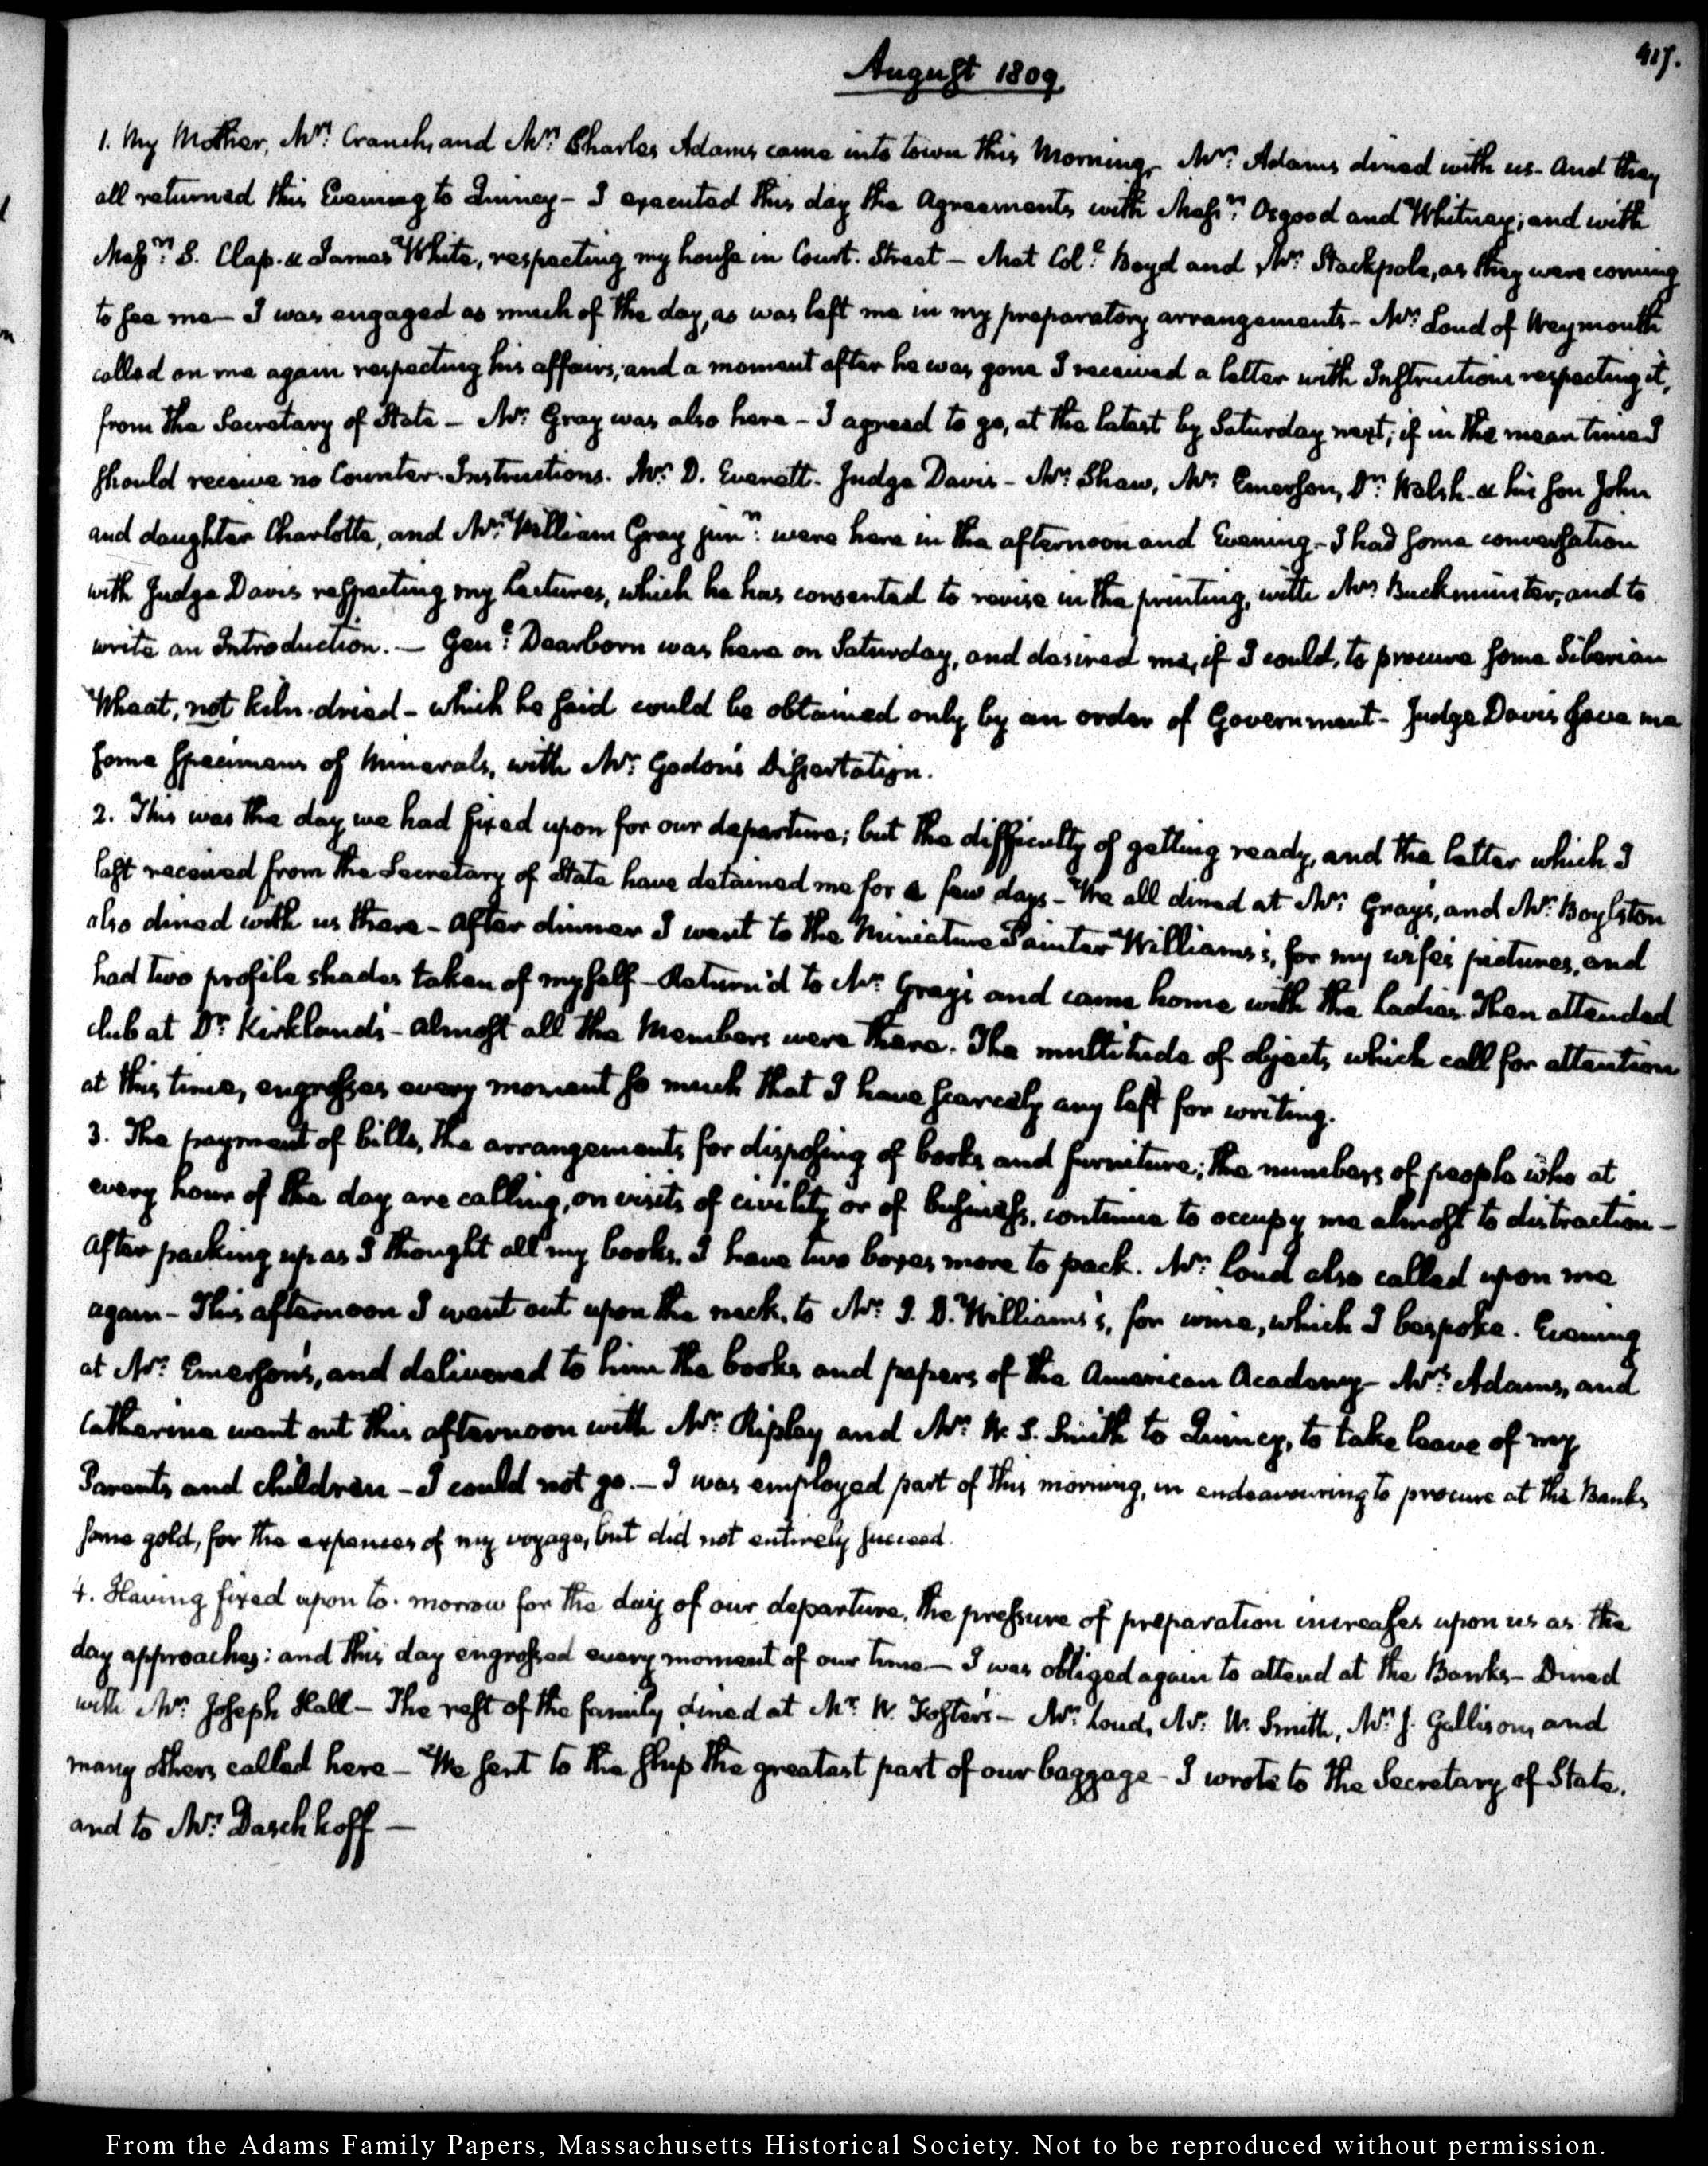 417.
August 1809.
1. My Mother, Mrs. Cranch, and Mrs. Charles Adams came into town this Morning. Mrs. Adams dined with us- And they
all returned this Evening to Quincy- I executed this day the Agreements with Messrs. Osgood and Whitney; and with
Messrs. S. Clap. & James White, respecting my house in Court. Street- Met Coll. Boyd and Mr. Stackpole, as they were coming
to see me- I was engaged as much of the day, as was left me in my preparatory arrangements- Mr. Loud of Weymouth
called on me again respecting his affairs; and a moment after he was gone I received a letter with Instructions respecting it,
from the Secretary of State- Mr. Gray was also here- I agreed to go, at the latest by Saturday next; if in the mean time I
should receive no Counter-Instructions. Mr. D. Everett. Judge Davis- Mr. Shaw, Mr. Emerson, Dr. Welsh- & his son John
and daughter Charlotte, and Mr. William Gray junr. were here in the afternoon and Evening- I had some conversation
with Judge Davis respecting my Lectures, which he has consented to revise in the printing, with Mr. Buckminster, and to
write an Introduction.- Genl. Dearborn was here on Saturday, and desired me, if I could, to procure some Siberian
Wheat, not kiln-dried- which he said could be obtained only by an order of Government- Judge Davis gave me
some specimens of Minerals, with Mr. Godon's Dissertation.
2. This was the day we had fixed upon for our departure; but the difficulty of getting ready, and the letter which I
last received from the Secretary of State have detained me for a few days- We all dined at Mr. Gray's, and Mr. Boylston
also dined with us there- After dinner I went to the Miniature Painter Williams's, for my wife's pictures, and
had two profile shades taken of myself- Return'd to Mr. Gray's and came home with the Ladies. Then attended
club at Dr. Kirkland's- almost all the Members were there. The multitude of objects which call for attention
at this time, engrosses every moment so much that I have scarcely any left for writing.
3. The payment of bills, the arrangements for disposing of books and furniture; the numbers of people who at
every hour of the day are calling, on visits of civility or of business, continue to occupy me almost to distraction-
After packing up as I thought all my books, I have two boxes more to pack. Mr. Loud also called upon me
again- This afternoon I went out upon the neck, to Mr. J. D. Williams's, for wine, which I bespoke. Evening
at Mr. Emerson's, and delivered to him the books and papers of the American Academy- Mrs. Adams, and
Catherine went out this afternoon with Mr. Ripley and Mr. W. S. Smith to Quincy, to take leave of my
Parents and children- I could not go.- I was employed part of this morning, in endeavouring to procure at the Banks
some gold, for the expences of my voyage, but did not entirely succeed.
4. Having fixed upon to-morrow for the day of our departure, the pressure of preparation increases upon us as the
day approaches: and this day engrossed every moment of our time- I was obliged again to attend at the Banks- Dined
with Mr. Joseph Hall- The rest of the family dined at Mr. W. Foster's- Mr. Loud, Mr. W. Smith, Mr. J. Gallison, and
many others called here- We sent to the ship the greatest part of our baggage- I wrote to the Secretary of State.
and to Mr. Daschkoff-
From the Adams Family Papers, Massachusetts Historical Society. Not to be reproduced without permission.